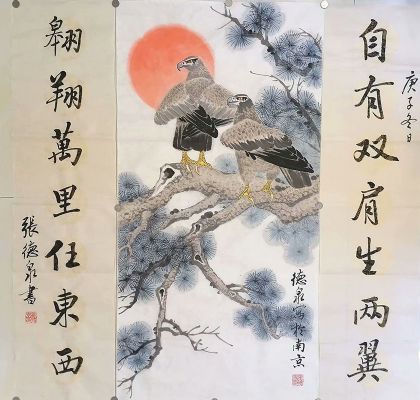 庚子冬日
自有双肩生两翼
德泉寫於南京
翱翔萬里任東西
張德泉書